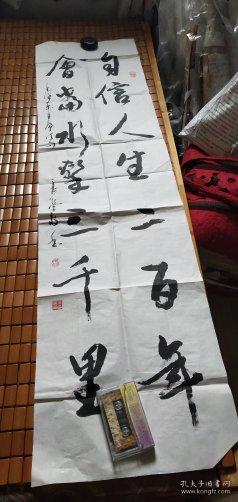 自信人生二百年
會當水擊三千里
毛澤東
孔夫子旧书网